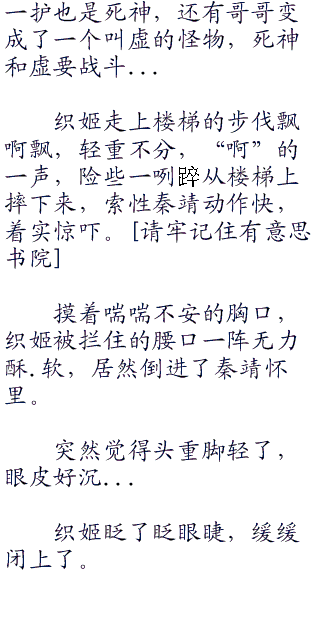 一护也是死神，还有哥哥变
成了一个叫虚的怪物，死神
和虚要战斗...
织姬走上楼梯的步伐飘
啊飘，轻重不分，“啊”的
一声，险些一咧踤从楼梯上
摔下来，索性秦靖动作快，
着实惊吓。[请牢记住有意思
书院]
摸着喘喘不安的胸口，
织姬被拦住的腰口一阵无力
酥.软，居然倒进了秦靖怀
里。
突然觉得头重脚轻了，
眼皮好沉...
织姬眨了眨眼睫，缓缓
闭上了。